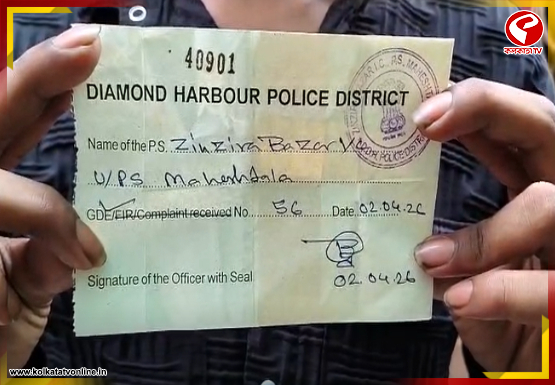 কলকাতা TV
40901
DIAMOND HARBOUR POLICE DISTRICT
Name of the P.S. Zinzira Bazar I/C
U/PS Maheshtala
GDE/FIR/Complaint received No. 56 Date 02.04.26
02.04.26
Signature of the Officer with Seal
www.kolkatatvonline.in